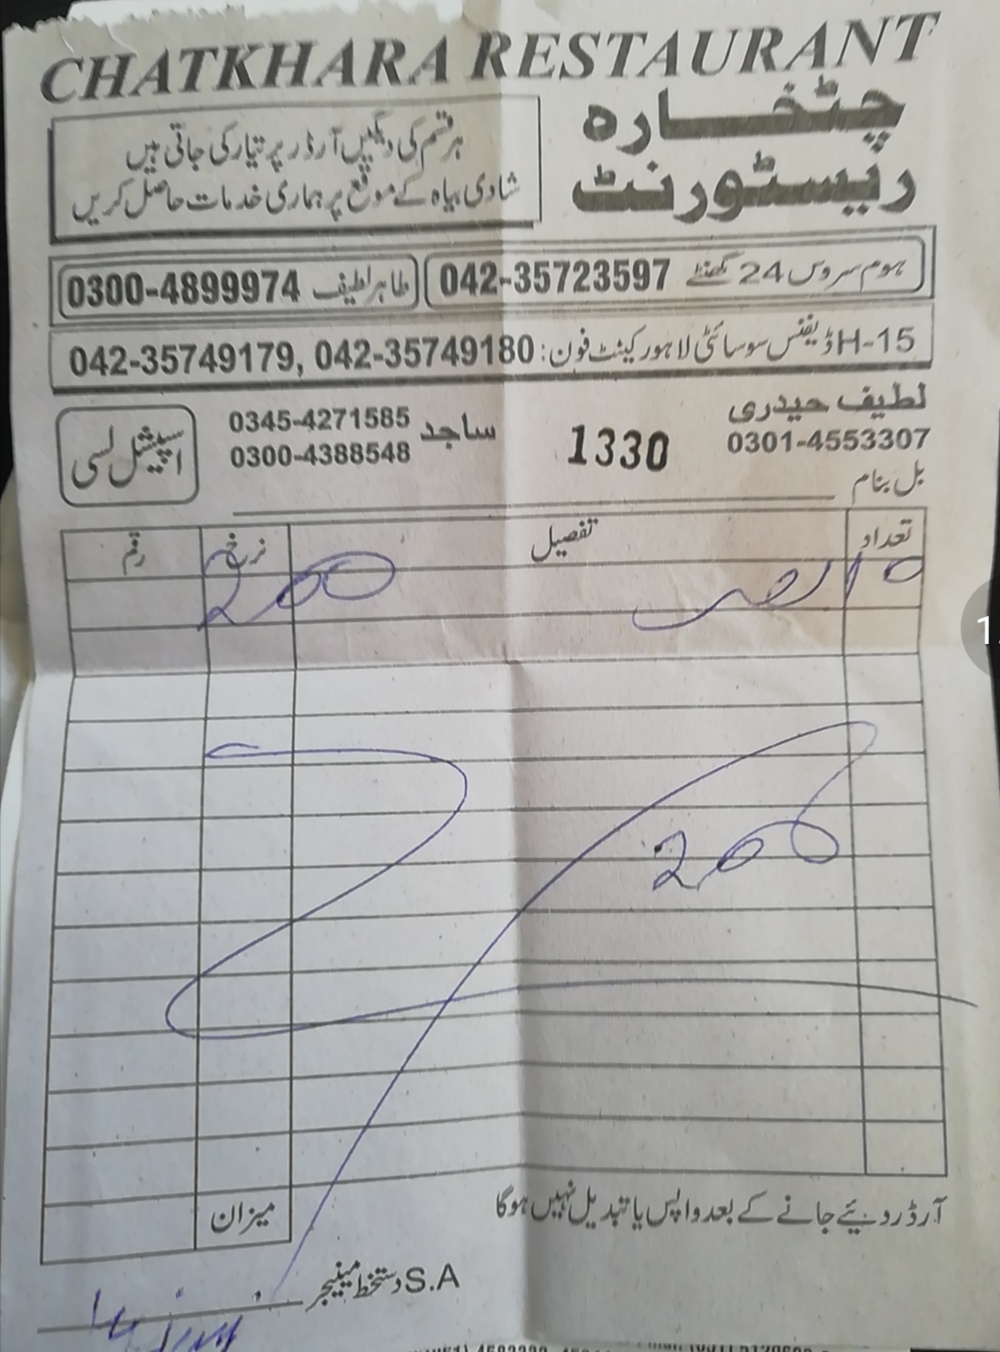 CHATKHARA RESTAURANT
چٹخارہ
ریسٹورنٹ
ہر قسم کی دیگیں آرڈر پر تیار کی جاتی ہیں
شادی بیاہ کے موقع پر ہماری خدمات حاصل کریں
ہوم سروس 24 گھنٹے 042-35723597
طاہر لطیف 0300-4899974
15-H ڈیفنس سوسائٹی لاہور کینٹ فون: 042-35749179, 042-35749180
لطیف حیدری
0301-4553307
1330
ساجد 0345-4271585
0300-4388548
اسپیشل لسی
بل بنام
تعداد تفصیل نرخ رقم
200
200
میزان
آرڈر دیئے جانے کے بعد واپس یا تبدیل نہیں ہوگا
S.A دستخط مینیجر